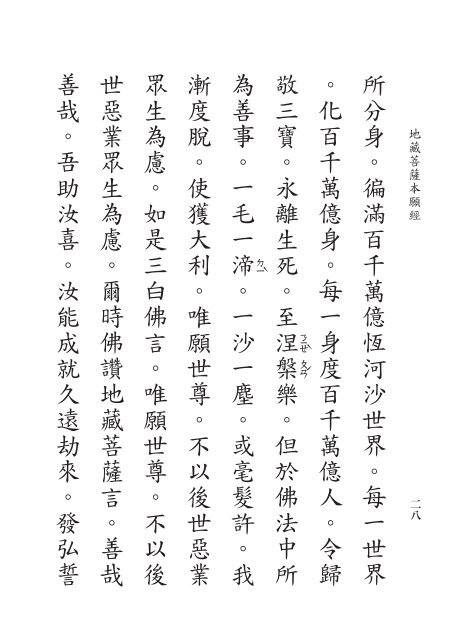 地藏菩薩本願經
二八
所分身。徧滿百千萬億恆河沙世界。每一世界
。化百千萬億身。每一身度百千萬億人。令歸
敬三寶。永離生死。至涅槃樂。但於佛法中所
為善事。一毛一渧。一沙一塵。或毫髮許。我
漸度脫。使獲大利。唯願世尊。不以後世惡業
眾生為慮。如是三白佛言。唯願世尊。不以後
世惡業眾生為慮。爾時佛讚地藏菩薩言。善哉
善哉。吾助汝喜。汝能成就久遠劫來。發弘誓